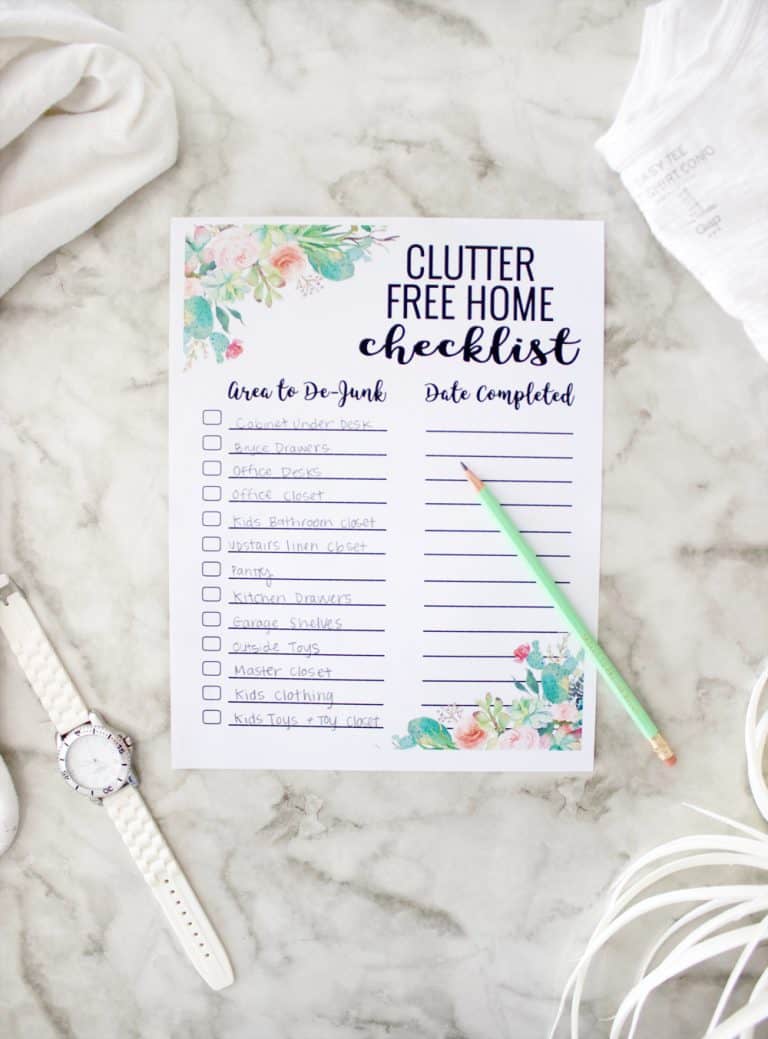 EASY TEE
SHIRT CONFO
Gap
CLUTTER
FREE HOME
checklist
Area to De-Junk Date Completed
Cabinet Under Desk
Bryce Drawers
Office Desks
Office Closet
Kids Bathroom closet
upstairs linen closet
Pantry
Kitchen Drawers
Garage Shelves
Outside Toys
Master Closet
Kids Clothing
Kids Toys + Toy Closet